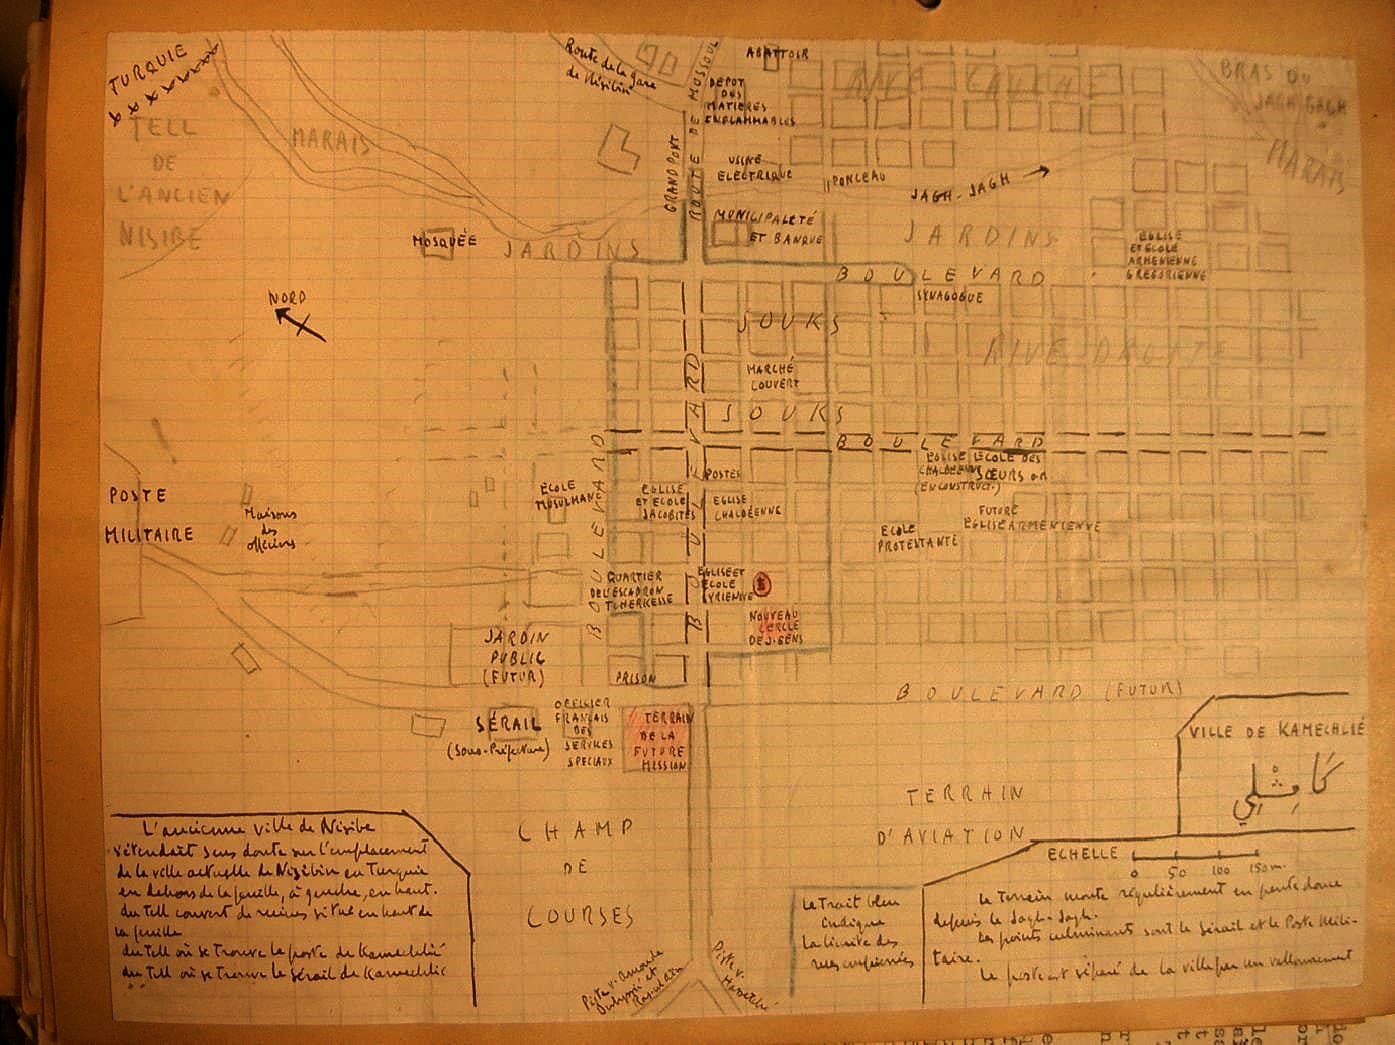 TURQUIE
TELL
DE
L'ANCIEN
NISIBE
MARAIS
Route de la gare
de Nisibin
GRAND PONT
ROUTE DE MOSSOUL
ABATTOIR
DEPOT
DES
MATIÈRES
INFLAMMABLES
USINE
ELECTRIQUE
PONCEAU
RIVE GAUCHE
BRAS DU
JAGH-JAGH
MARAIS
JAGH-JAGH
MOSQUÉE
JARDINS
MUNICIPALITÉ
ET BANQUE
JARDINS
EGLISE
ET ECOLE
ARMENIENNE
GREGORIENNE
BOULEVARD
SYNAGOGUE
NORD
SOUKS
RIVE DROITE
MARCHÉ
COUVERT
SOUKS
BOULEVARD
BOULEVARD
BOULEVARD
POSTE
MILITAIRE
Maisons
des
officiers
ÉCOLE
MUSULMANE
EGLISE
ET ECOLE
JACOBITES
POSTES
EGLISE
CHALDÉENNE
EGLISE
CHALDÉENNE
(EN CONSTRUCT.)
ECOLE DES
SŒURS
FUTURE
EGLISE ARMENIENNE
ECOLE
PROTESTANTE
QUARTIER
DE L'ESCADRON
TCHERKESSE
EGLISE ET
ECOLE
SYRIENNE
NOUVEAU
CERCLE
DE J. GENS
JARDIN
PUBLIC
(FUTUR)
PRISON
BOULEVARD (FUTUR)
SÉRAIL
(Sous-Préfecture)
OFFICIER
FRANÇAIS
DES
SERVICES
SPECIAUX
TERRAIN
DE LA
FUTURE
MISSION
VILLE DE KAMECHLIÉ
TERRAIN
D'AVIATION
CHAMP
DE
COURSES
ECHELLE
0 50 100 150 m.
L'ancienne ville de Nisibe
s'étendait sans doute sur l'emplacement
de la ville actuelle de Nisibin en Turquie
en dehors de la feuille, à gauche, en haut.
du Tell couvert de ruines situé en haut de
la feuille
du Tell où se trouve le poste de Kamechlié
du Tell où se trouve le Sérail de Kamechlié
Piste v. Amouda
Piste v.
Hassetché
Le Trait bleu
indique
la limite des
rues
Le Terrain monte régulièrement en pente douce
depuis le Jagh-Jagh.
Les points culminants sont le Sérail et le Poste Mili-
taire.
Le poste est séparé de la ville par un vallonnement